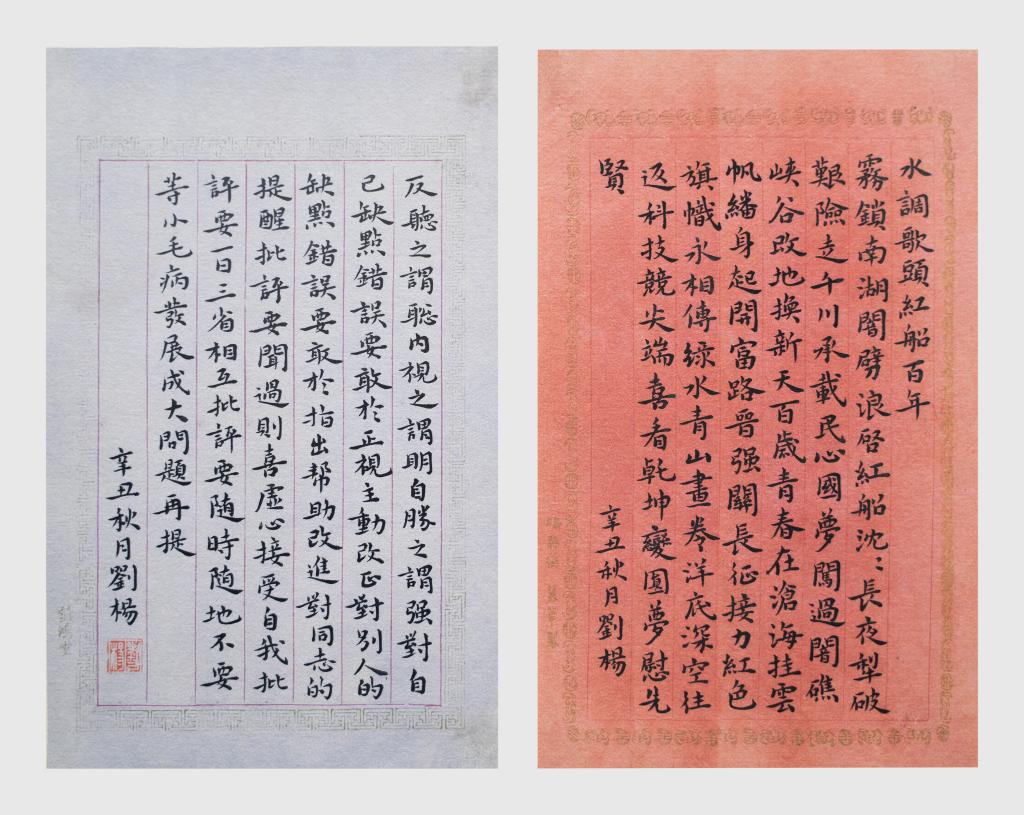 水調歌頭紅船百年
霧鎖南湖闇劈浪启紅船沈〻長夜犁破
艱險走千川承載民心國夢闖過闇礁
峽谷改地換新天百歲青春在滄海挂雲
帆繙身起開富路晉强關長征接力紅色
旗幟永相傳綠水青山畫卷洋底深空往
返科技競尖端喜看乾坤變圓夢慰先
賢
辛丑秋月劉楊
反聽之謂聰内視之謂明自勝之謂强對自
己缺點錯誤要敢於正視主動改正對别人的
缺點錯誤要敢於指出帮助改進對同志的
提醒批評要聞過則喜虚心接受自我批
評要一日三省相互批評要隨時隨地不要
等小毛病發展成大問題再提
辛丑秋月劉楊